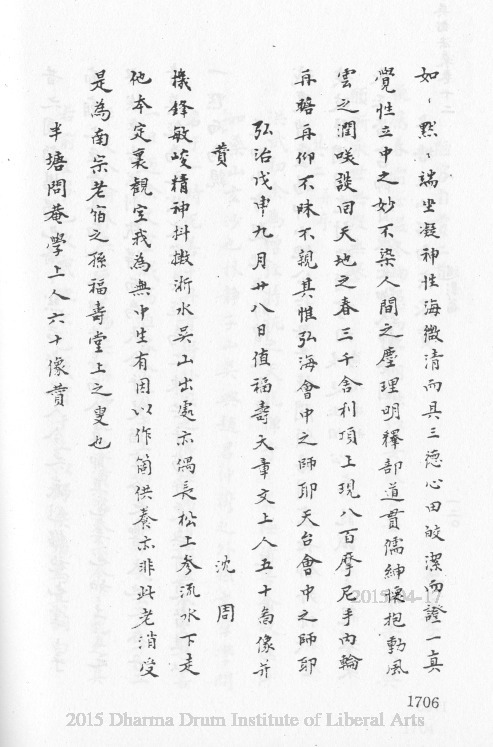 如〻默〻端坐凝神性海徹清而具三德心田皎潔而證一真
覺性立中之妙不染人間之塵理明釋部道貫儒紳懷抱動風
雲之潤咲談回天地之春三千舍利頂上現八百摩尼手內輪
再瞻再仰不昧不親其惟弘海會中之師耶天台會中之師耶
弘治戊申九月廿八日值福壽天章文上人五十爲像并
贊 沈周
機鋒敏峻精神抖擻浙水吳山出處亦偶長松上參流水下走
他本定裏觀空我為無中生有因以作箇供養亦非此老消受
是為南宗老宿之孫福壽堂上之叟也
半塘問菴學上人六十像贊
2015-04-17
1706
2015 Dharma Drum Institute of Liberal Arts